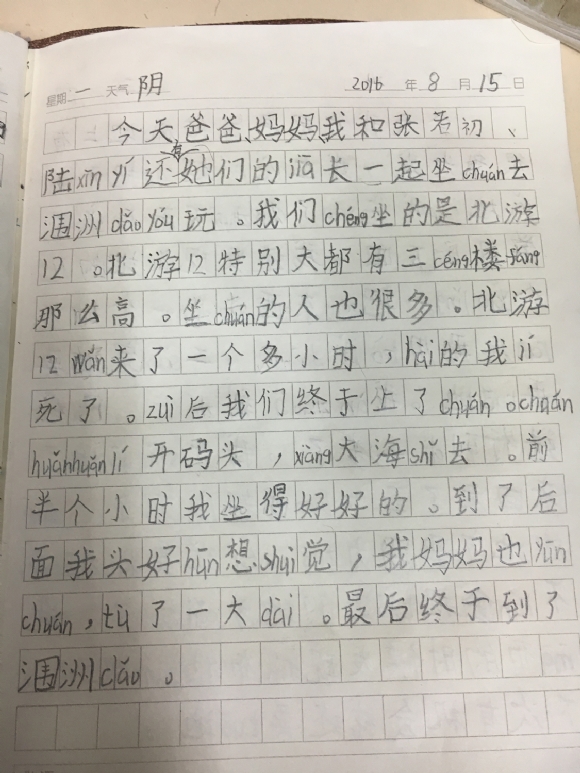 星期 一 天气 阴 2016 年 8 月 15 日
今天爸爸、妈妈、我和张若初、
陆xīn yí还有她们的jiā长一起坐chuán去
涠洲dǎo yóu玩。我们chéng坐的是北游
12。北游12特别大都有三céng楼fáng
那么高。坐chuán的人也很多。北游
12 wǎn来了一个多小时,hài的我jí
死了。zuì后我们终于上了chuán。chuán
huǎnhuǎn lí开码头,xiàng大海shǐ去。前
半个小时我坐得好好的。到了后
面我头好hūn想shuì觉,我妈妈也yūn
chuán,tù了一大dài。最后终于到了
涠洲dǎo。